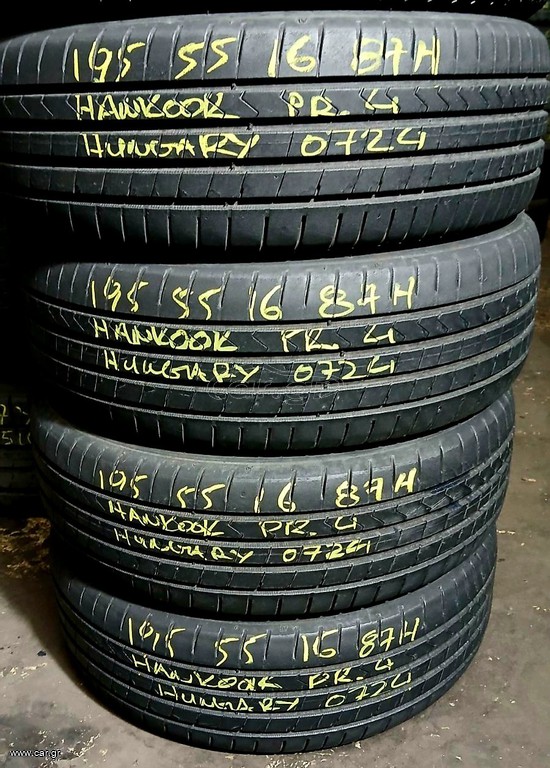 195 55 16 87H
HANKOOK PR. 4
HUNGARY 0724
195 55 16 87H
HANKOOK PR. 4
HUNGARY 0724
195 55 16 87H
HANKOOK PR. 4
HUNGARY 0724
195 55 16 87H
HANKOOK PR. 4
HUNGARY 0724
www.car.gr